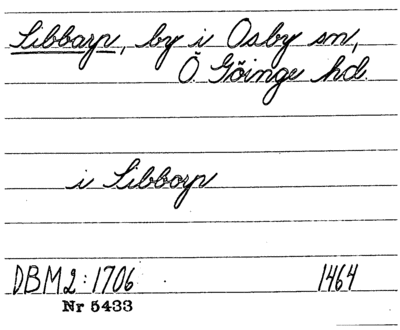 Sibbarp, by i Osby sn,
Ö Göinge hd.
i Sibborp
DBM 2:1706 1464
Nr 5433